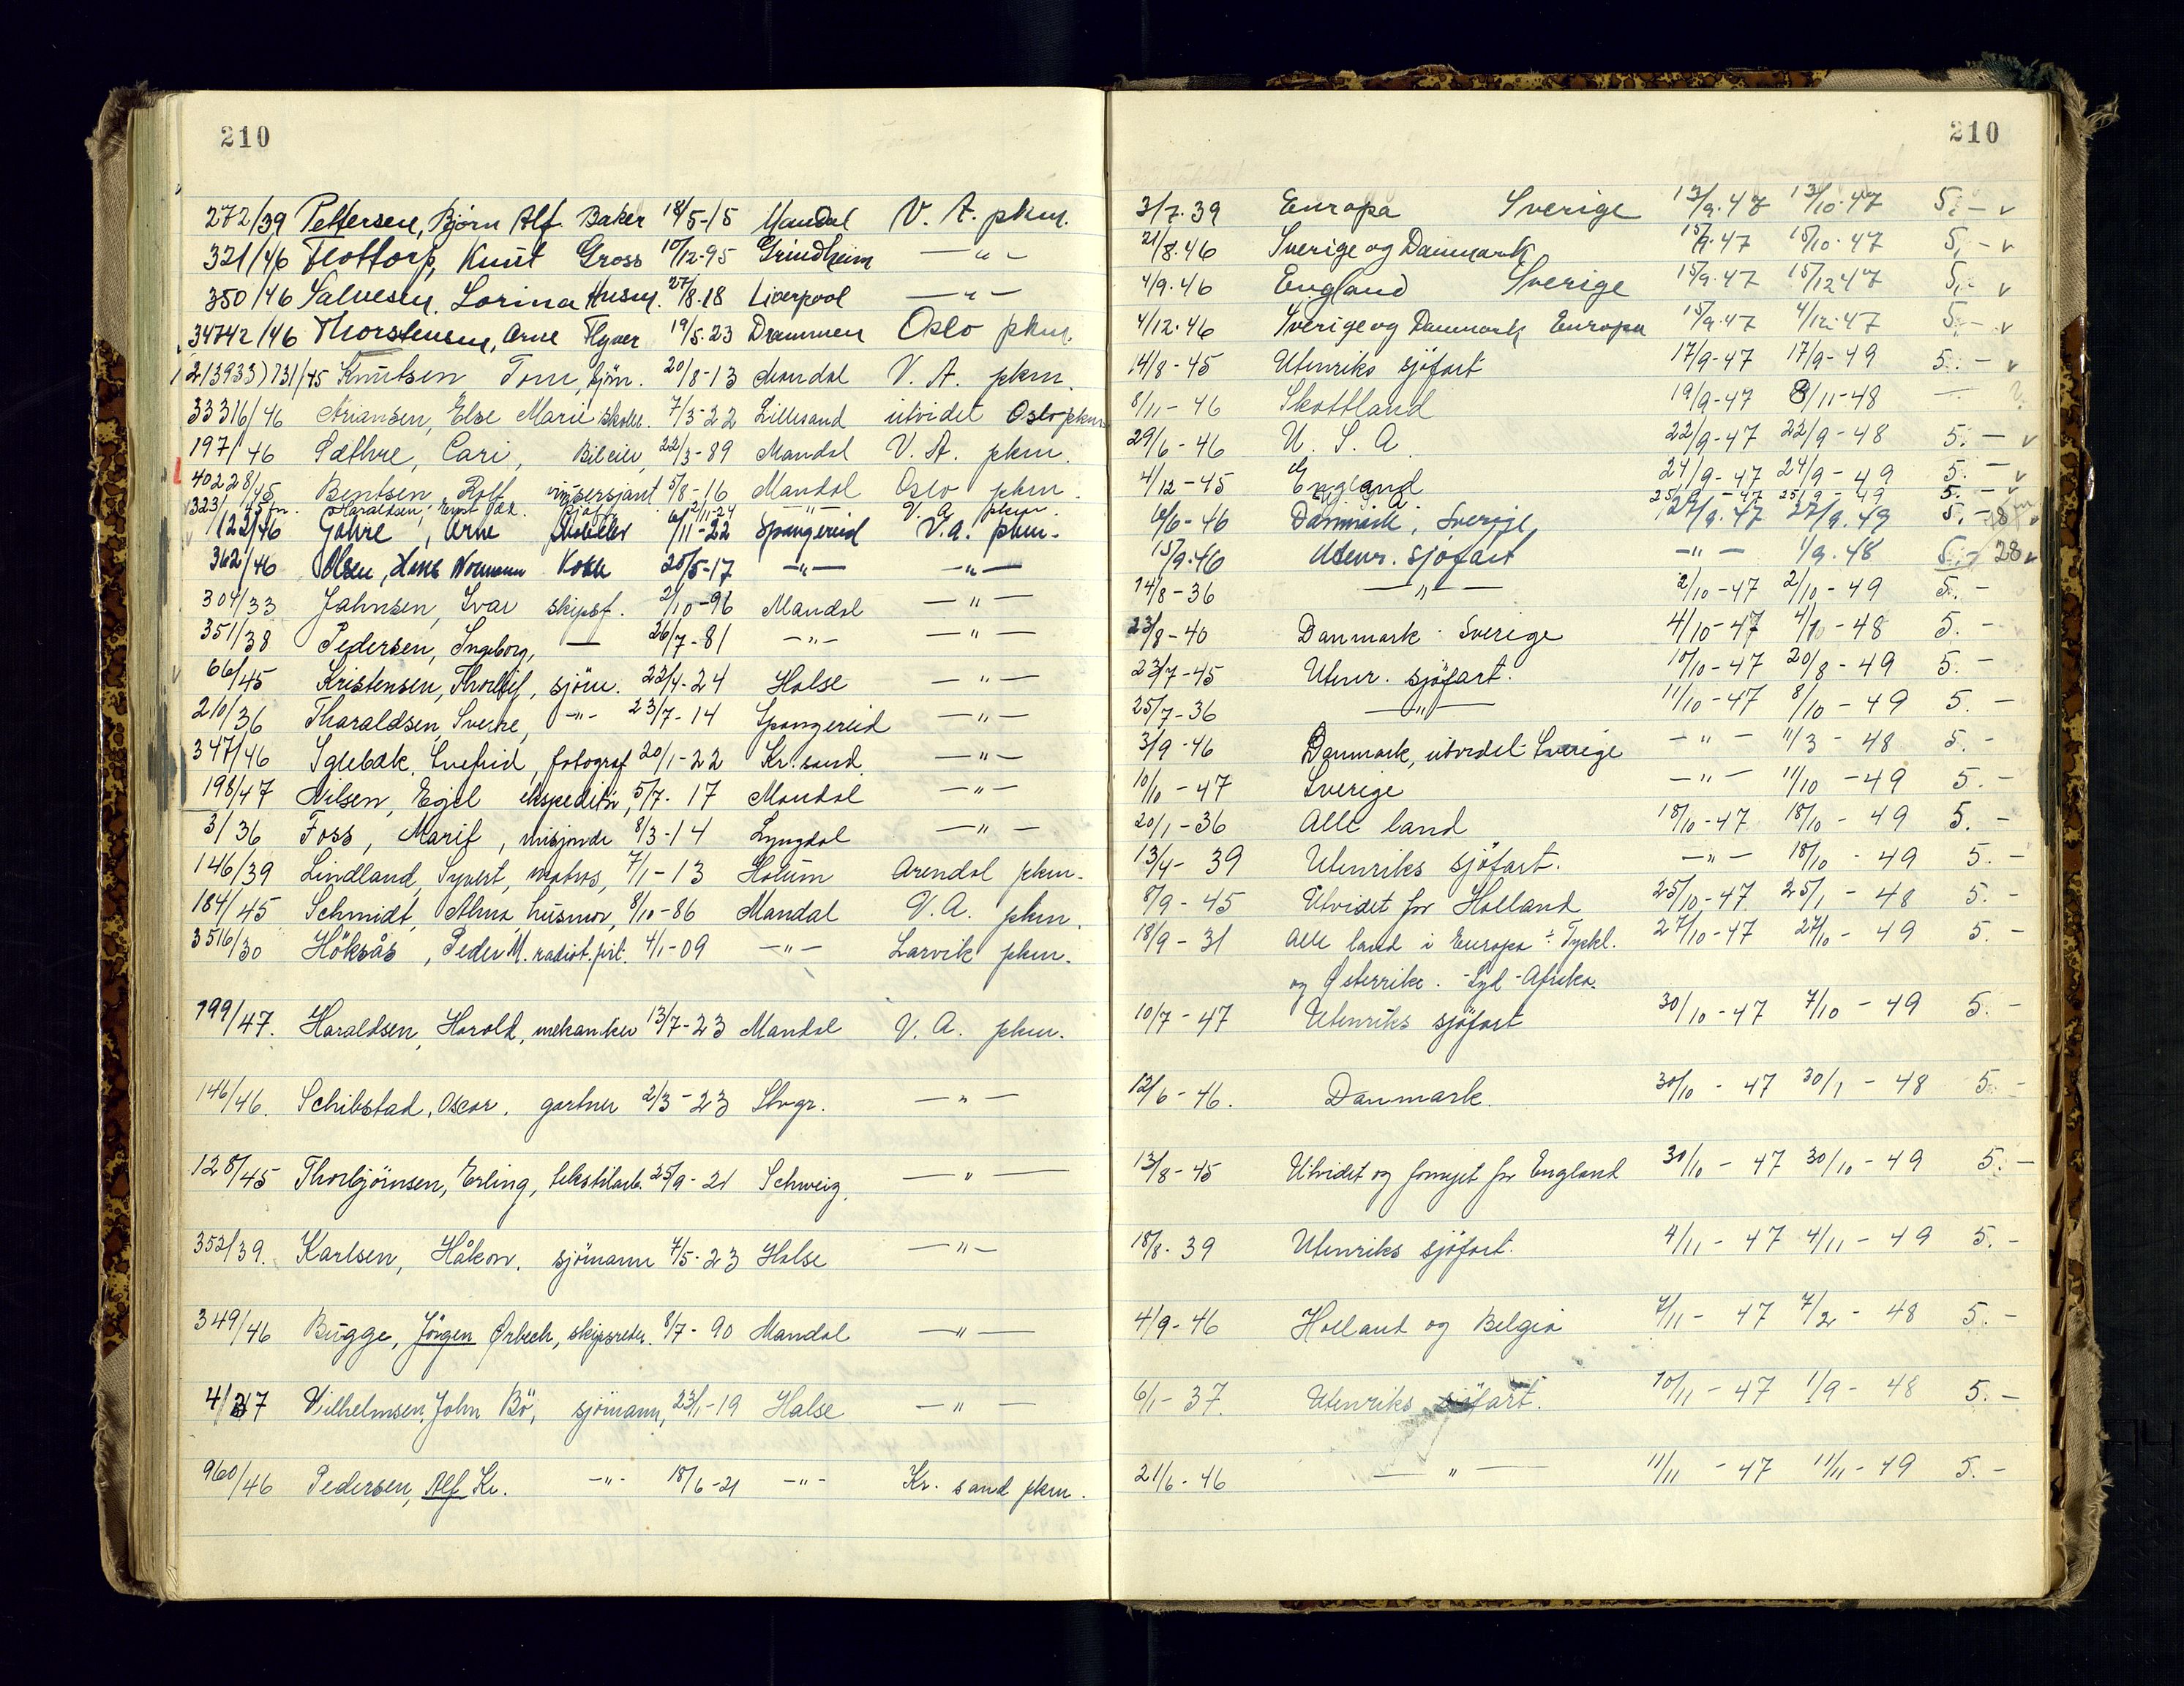 210
272/39 Pettersen, Björn Alf Baker 18/5-15 Mandal V. A. pkm.
321/46 Flottorp, Knut Gross 10/12-95 Grindheim —"—
350/46 Salvesen, Lorina Husm. 27/8.18 Liverpool —"—
34742/46 Thorstensen, Arne Flyver 19/5.23 Drammen Oslo pkm.
213933) 731/45 Knutsen Tom, sjöm. 20/8-13 Mandal V. A. pkm.
33316/46 Ariansen, Else Marie 7/3-22 Lillesand utvidet Oslo pkm.
197/46 Sæthre, Cari, Bileier, 22/3-89 Mandal V. A. pkm.
40228/45 Bentsen, Rolf, sersjant 5/8-16 Mandal Oslo pkm.
323/45 Haraldsen, 2/11-24 —"— V. A. pkm.
122/46 Gahre, Arne 6/11-22 Spangereid V.A. pkm.
362/46 Olsen, Hans Normann Kokk 20/5-17 —"— —"—
304/33 Jahnsen, Ivar skipsf. 2/10-96 Mandal —"—
351/38 Pedersen, Ingeborg, — 26/7-81 —"— —"—
66/45 Kristensen, Thorleif, sjöm. 22/4-24 Halse —"—
210/36 Tharaldsen, Sverre, —"— 23/7-14 Spangereid —"—
347/46 Sglebæk, fotograf 20/1-22 Kr. sand —"—
198/47 Nilsen, Egil ekspeditör, 5/7-17 Mandal —"—
3/36 Foss, Marit, misjonær 8/3-14 Lyngdal —"—
146/39 Lindland, Syvert, matros, 7/1-13 Holum Arendal pkm.
184/45 Schmidt, Alma, husmor, 8/10-86 Mandal V.A. pkm.
3516/30 Höksås, Peder M. 4/1-09 —"— Larvik pkm.
199/47. Haraldsen, Harald, mekaniker 13/7-23 Mandal V. A. pkm.
146/46. Schibstad, Oscar. gartner 2/3-23 Stvgr. —"—
128/45 Thorbjörnsen, Erling, tekstilarb. 25/9-21 Schweiz. —"—
352/39. Karlsen, Håkon. sjömann 7/5-23 Halse —"—
349/46 Bugge, Jörgen Ørbech, skipsreder. 8/7-90 Mandal —"—
4/37 Vilhelmsen, John Bö, sjömann, 23/1-19 Halse —"—
960/46 Pedersen, Alf Kr. —"— 18/6-21 —"— Kr. sand pkm.
210
3/7.39 Europa Sverige 13/9.47 13/10.47 5.- v
21/8.46 Sverige og Danmark 15/9.47 15/10.47 5,- v
4/9.46 England Sverige 15/9.47 15/12 47 5,- v
4/12.46 Sverige og Danmark Europa 15/9.47 4/12.47 5,- v
14/8-45 Utenriks sjöfart 17/9-47 17/9-49 5.- v
8/11-46 Skottland 19/9-47 8/11-48 —
29/6-46 U. S. A. 22/9-47 22/9-48 5.- v
4/12-45 England 24/9-47 24/9-49 5.- v
25/9-47 25/9-49 5.- v
6/6-46 Danmark, Sverige 27/9.47 27/9.49 5.-
15/9.46 Utenr. sjöfart —"— 1/9.48 5.- 28 v
14/8-36 —"— 2/10-47 2/10-49 5.-
23/8-40 Danmark - Sverige 4/10-47 4/10-48 5.-
23/7-45 Utenr. sjöfart. 10/10-47 20/8-49 5.-
25/7-36 —"— 11/10-47 8/10-49 5.-
3/9-46 Danmark, utvidet Sverige —"— 11/3-48 5.-
10/10-47 Sverige —"— 11/10-49 5.-
20/1-36 Alle land 18/10-47 18/10-49 5.-
13/4-39 Utenriks sjöfart. —"— 18/10-49 5.-
8/9-45 Utvidet for Holland 25/10-47 25/1-48 5.-
18/9-31 Alle land i Europa ÷ Tyskl. 27/10-47 27/10-49 5.-
og Østerrike. - Syd-Afrika.
10/7-47 Utenriks sjöfart 30/10-47 7/10-49 5.-
12/6-46. Danmark. 30/10-47 30/1-48 5.-
13/8-45 Utvidet og fornyet for England 30/10-47 30/10-49 5.-
18/8-39 Utenriks sjöfart. 4/11-47 4/11-49 5.-
4/9-46 Holland og Belgia 7/11-47 7/2-48 5.-
6/1-37. Utenriks sjöfart. 10/11-47 1/9-48 5.-
21/6-46 —"— 11/11-47 11/11-49 5.-